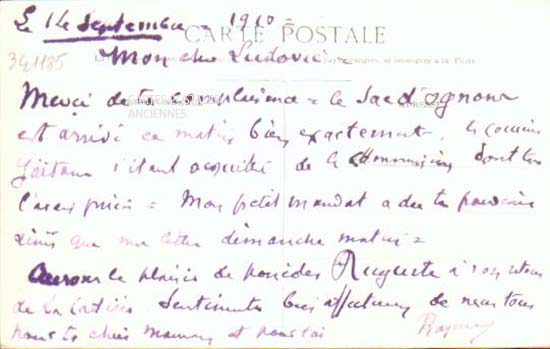 Le 14 Septembre = 1910 =
CARTE POSTALE
Mon cher Ludovic
341185
CARTES
ANCIENNES
Merci de ta complaisance = le Sac d'ognons
est arrivé ce matin bien exactement, le cousin
Gaëtan s'étant acquitté de la commission dont tu
l'avais prié = Mon petit mandat a du te parvenir
ainsi que ma lettre dimanche matin =
le plaisir de posséder Auguste à son retour
de La Sentiments bien affectueux de nous tous
pour ta chère maman et pour toi